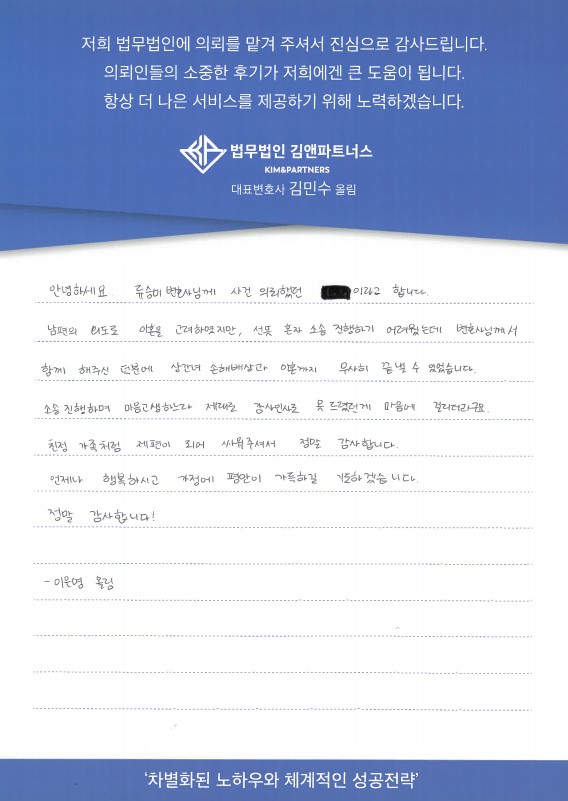 저희 법무법인에 의뢰를 맡겨 주셔서 진심으로 감사드립니다.
의뢰인들의 소중한 후기가 저희에겐 큰 도움이 됩니다.
항상 더 나은 서비스를 제공하기 위해 노력하겠습니다.
법무법인 김앤파트너스
KIM&PARTNERS
대표변호사 김민수 올림
안녕하세요. 류승미 변호사님께 사건 의뢰했던 이라고 합니다.
남편의 외도로 이혼을 고려하였지만, 선뜻 혼자 소송 진행하기 어려웠는데 변호사님께서
함께 해주신 덕분에 상간녀 손해배상과 이혼까지 무사히 끝낼 수 있었습니다.
소송 진행하며 마음고생하느라 제대로 감사인사를 못 드렸던게 마음에 걸리더라구요.
친정 가족처럼 제편이 되어 싸워주셔서 정말 감사합니다.
언제나 행복하시고 가정에 평안이 가득하길 기도하겠습니다.
정말 감사합니다!
- 이은영 올림
'차별화된 노하우와 체계적인 성공전략'